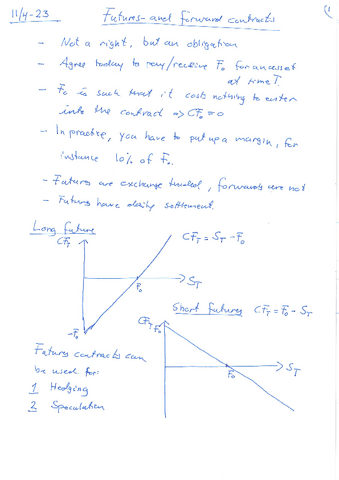 11/4-23 Futures- and forward contracts
- Not a right, but an obligation
- Agree today to pay/receive F₀ for an asset
at time T.
- F₀ is such that it costs nothing to enter
into the contract => CF₀ = 0
- In practice, you have to put up a margin, for
instance 10% of F₀.
- Futures are exchange traded, forwards are not
- Futures have daily settlement.
Long future
CF_T
CF_T = S_T - F₀
F₀
S_T
-F₀
Short futures CF_T = F₀ - S_T
CF_T
F₀
F₀
S_T
Futures contracts can
be used for:
1 Hedging
2 Speculation